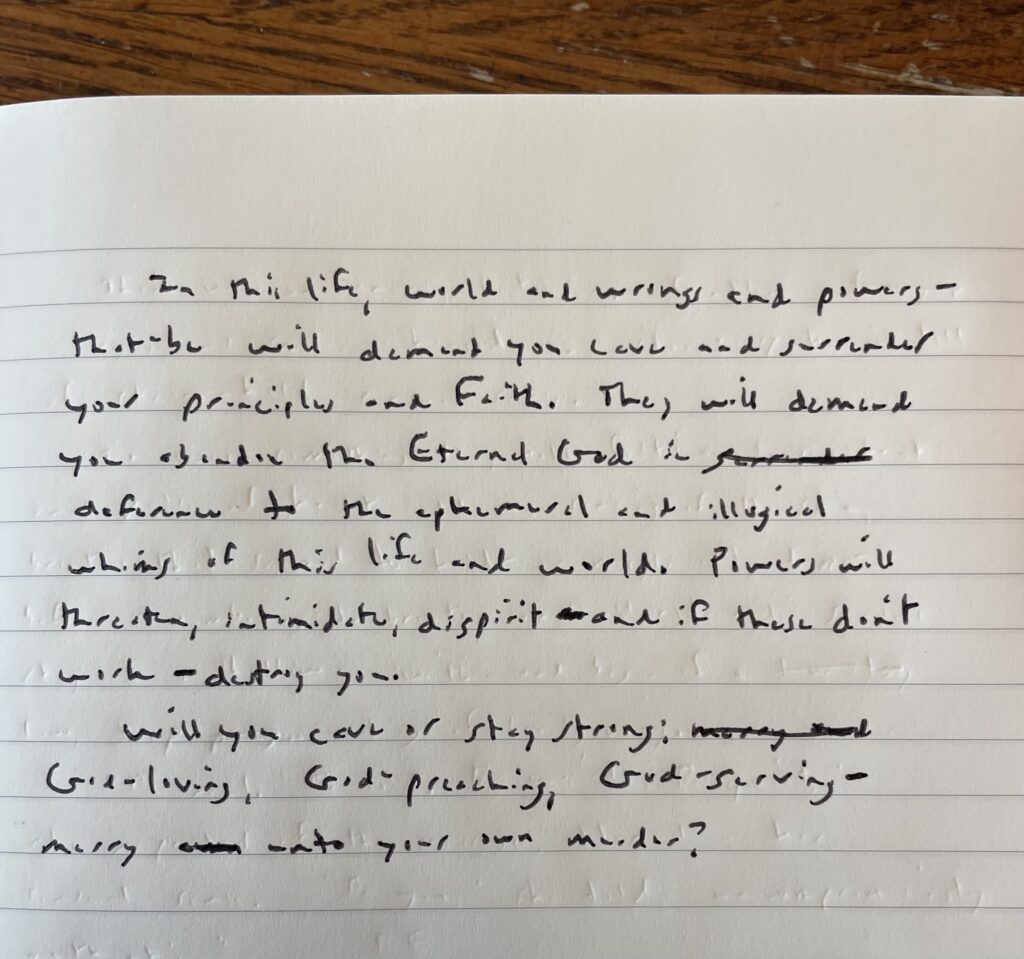 In this life, world and wrongs and powers-
that-be will demand you cave and surrender
your principles and Faith. They will demand
you abandon the Eternal God in
deference to the ephemeral and illogical
whims of this life and world. Powers will
threaten, intimidate, dispirit and if these don't
work - destroy you.
Will you cave or stay strong;
God-loving, God-preaching, God-serving-
merry unto your own murder?